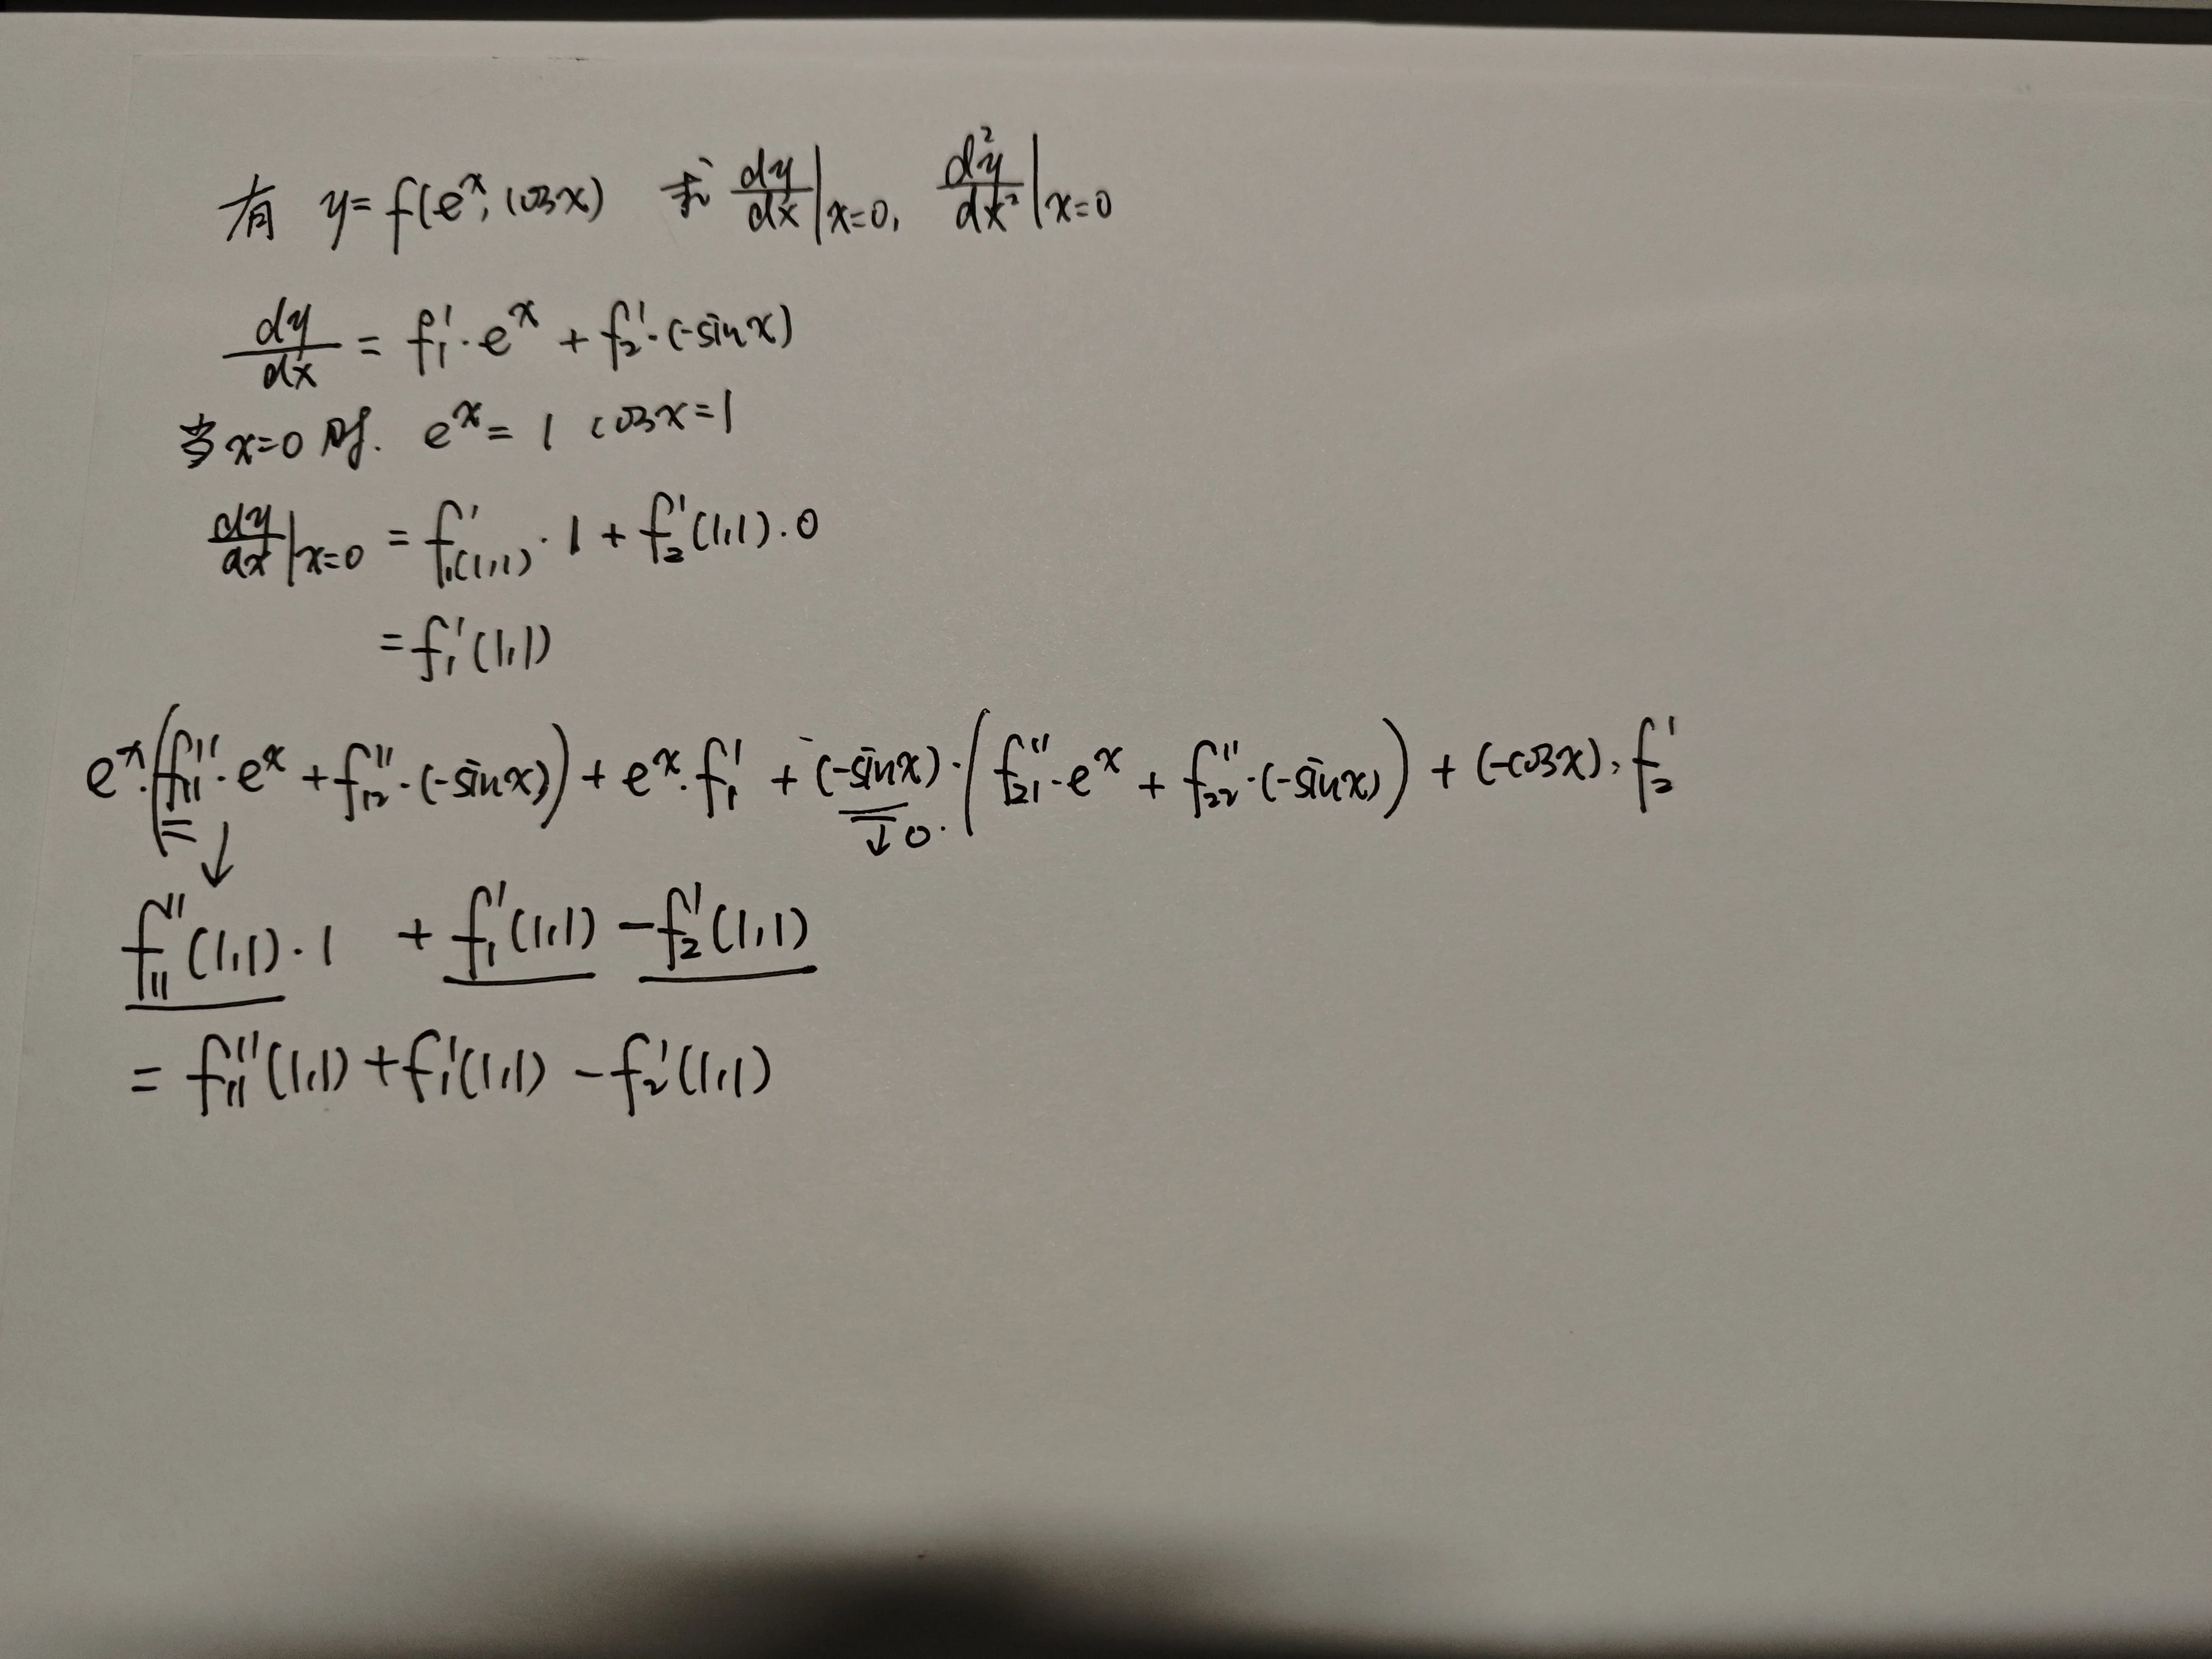 有 y=f(eˣ, cosx) 求 dy/dx|x=0, d²y/dx²|x=0
dy/dx = f₁′·eˣ + f₂′·(-sinx)
当x=0时. eˣ=1 cosx=1
dy/dx|x=0 = f₁′(1,1)·1 + f₂′(1,1)·0
=f₁′(1,1)
eˣ·(f₁₁″·eˣ + f₁₂″·(-sinx)) + eˣ·f₁′ + (-sinx)·(f₂₁″·eˣ + f₂₂″·(-sinx)) + (-cosx)·f₂′
↓ ↓0.
f₁₁″(1,1)·1 + f₁′(1,1) -f₂′(1,1)
= f₁₁″(1,1)+f₁′(1,1) -f₂′(1,1)